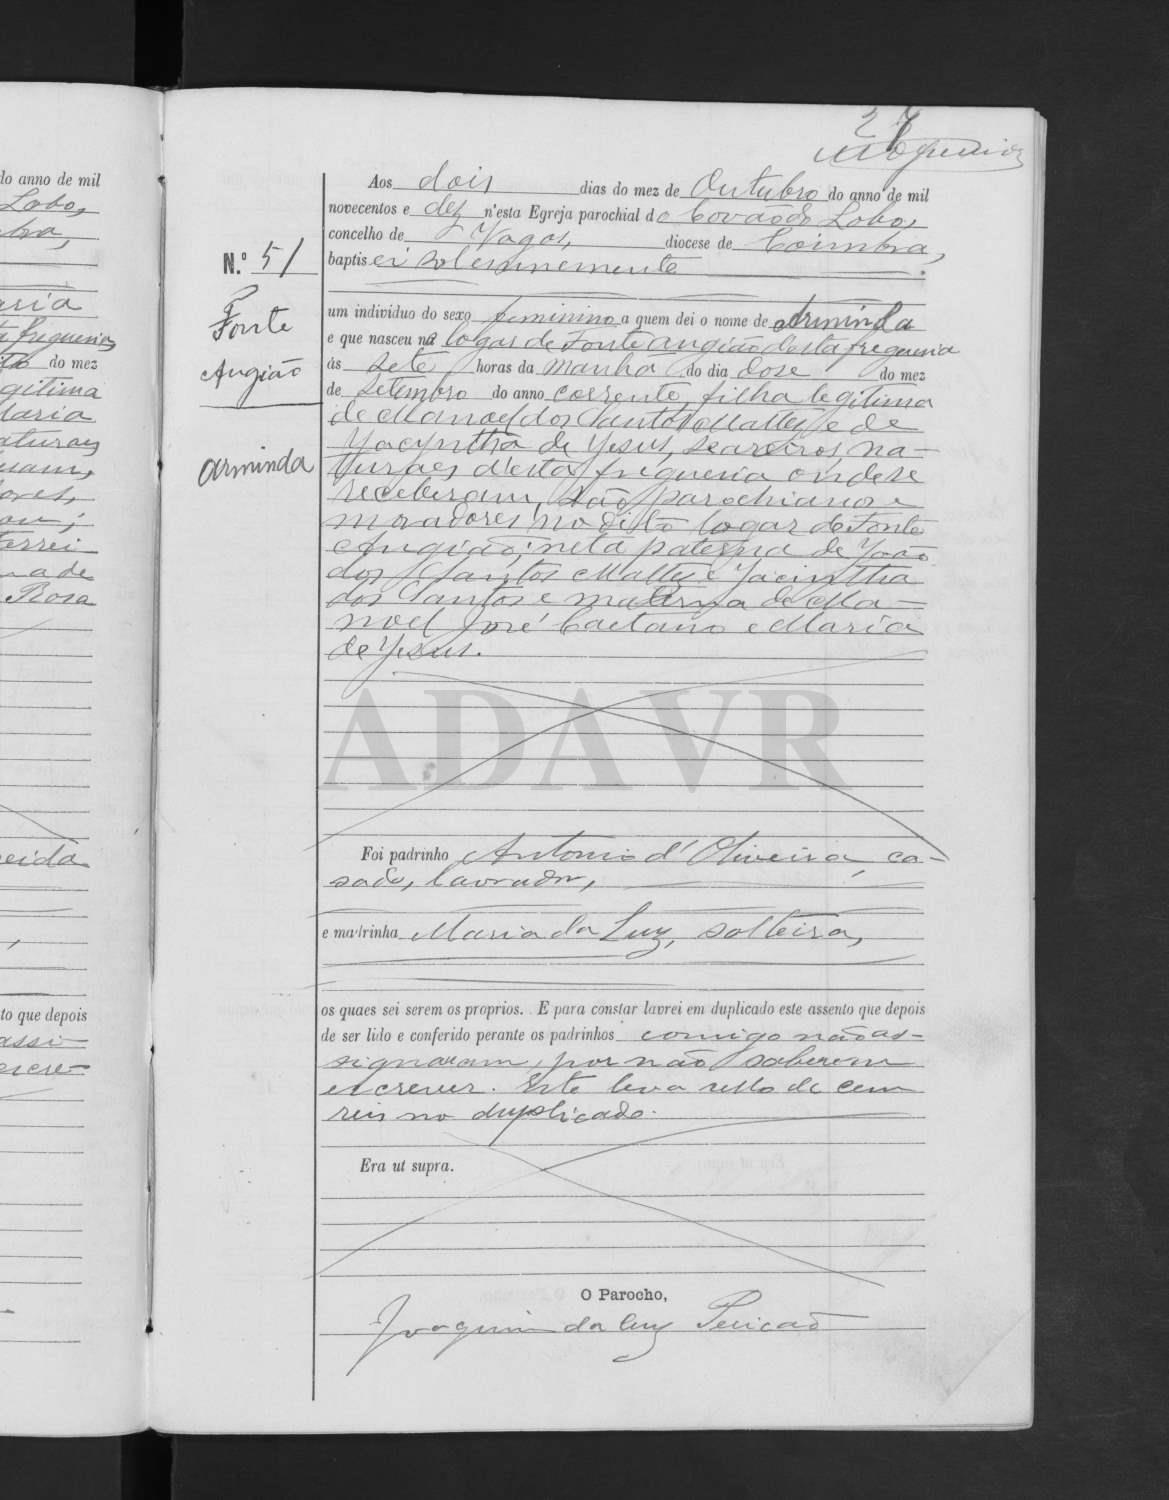 do anno de mil
Lobo,
bra,
aria
freguezia
do mez
gitima
Maria
aturaes
ores,
Ferrei
a de
Rosa
eida
to que depois
assi-
escre-
27
Aos dois dias do mez de Outubro do anno de mil
novecentos e dez n'esta Egreja parochial do Covão do Lobo,
concelho de Vagos, diocese de Coimbra,
N.º 51
baptisei solemnemente
Fonte
Angião
Arminda
um individuo do sexo feminino a quem dei o nome de Arminda
e que nasceu no logar de Fonte Angião desta freguezia
ás sete horas da manhã do dia dose do mez
de Setembro do anno corrente, filha legitima
de Manoel dos Santos Mattes e de
Jacyntha de Jesus, seareiros, na-
turaes d'esta freguezia onde se
receberam, são parochianos e
moradores no dito logar de Fonte
Angião; neta paterna de João
dos Santos Mattes e Jacintha
dos Santos e materna de Ma-
noel José Caetano e Maria
de Jesus.
ADAVR
Foi padrinho Antonio d'Oliveira, ca-
sado, lavrador,
e madrinha Maria da Luz, solteira,
os quaes sei serem os proprios. E para constar lavrei em duplicado este assento que depois
de ser lido e conferido perante os padrinhos comigo não as-
signaram, por não saberem
escrever. Este leva sello de cem
reis no duplicado.
Era ut supra.
O Parocho,
Joaquim da Luz Pericão